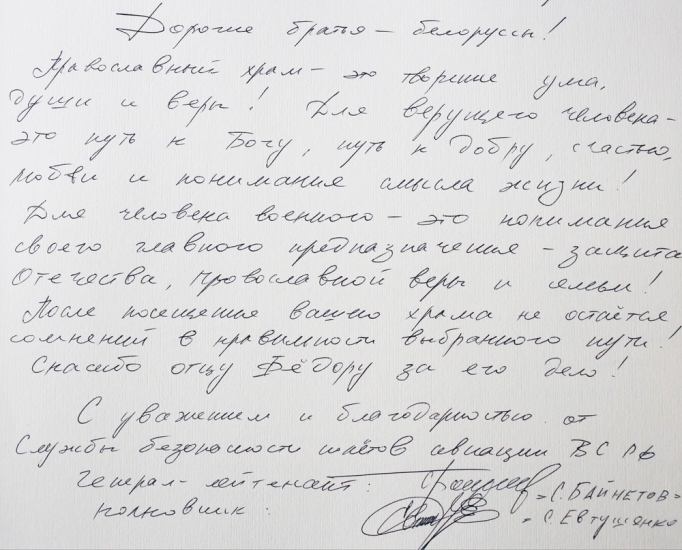 Дорогие братья – белорусы!
Православный храм – это творение ума,
души и веры! Для верущего человека –
это путь к Богу, путь к добру, счастью,
любви и понимания смысла жизни!
Для человека военного – это понимания
своего главного предназначения – защита
Отечества, православной веры и семьи!
После посещения вашего храма не остаётся
сомнений в правильности выбранного пути!
Спасибо отцу Фёдору за его дело!
С уважением и благодарностью от
Службы безопасности полётов авиации ВС РФ
Генерал-лейтенант: = С. БАЙНЕТОВ =
полковник: = С. ЕВТУШЕНКО